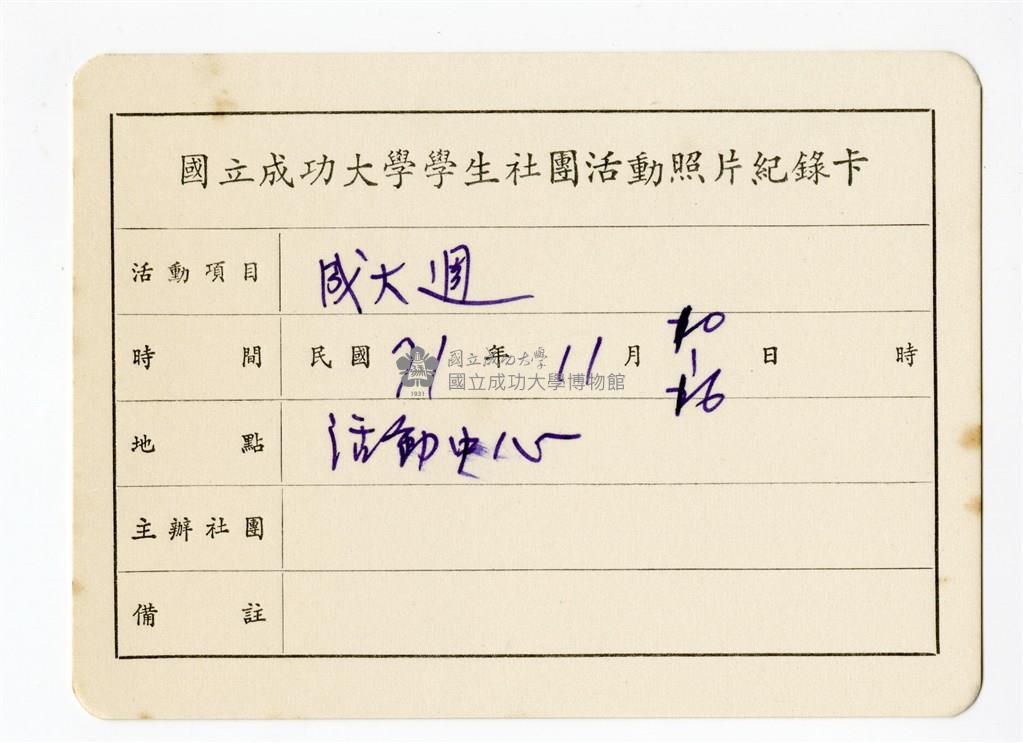 國立成功大學學生社團活動照片紀錄卡
活動項目 成大週
時間 民國 71 年 11 月 10-16 日 時
國立成功大學
國立成功大學博物館
1931
地點 活動中心
主辦社團
備註